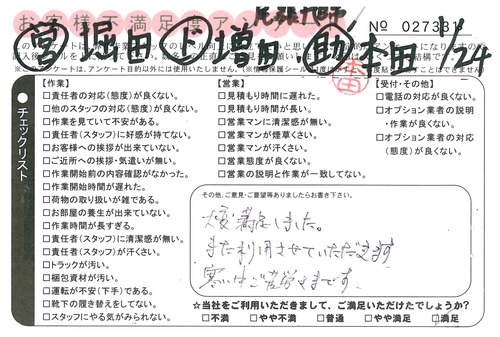 お客様不満足度ア
No 027331
営 堀田 ヅ 増田 助 本田 1/24
チェックリスト
【作業】
□責任者の対応(態度)が良くない。
□他のスタッフの対応(態度)が良くない。
□作業を見ていて不安がある。
□責任者(スタッフ)に好感が持てない。
□お客様への挨拶が出来ていない。
□ご近所への挨拶・気遣いが無い。
□作業開始前の内容確認がなかった。
□作業開始時間が遅れた。
□荷物の取り扱いが雑である。
□お部屋の養生が出来ていない。
□作業時間が長すぎる。
□責任者(スタッフ)に清潔感が無い。
□責任者(スタッフ)が汗くさい。
□トラックが汚い。
□梱包資材が汚い。
□運転が不安(下手)である。
□靴下の履き替えをしてない。
□スタッフにやる気がみられない。
【営業】
□見積もり時間に遅れた。
□見積もり時間が長い。
□営業マンに清潔感が無い。
□営業マンが煙草くさい。
□営業マンが汗くさい。
□営業態度が良くない。
□営業の説明と作業が一致してない。
【受付・その他】
□電話の対応が良くない。
□オプション業者の説明
・作業が良くない。
□オプション業者の対応
(態度)が良くない。
その他、ご意見・ご要望等ありましたらお書き下さい。
大変満足しました。
また利用させていただきます
寒い中ご苦労さまです。
☆当社をご利用いただきまして、ご満足いただけたでしょうか?
□不満 □やや不満 □普通 □やや満足 □満足